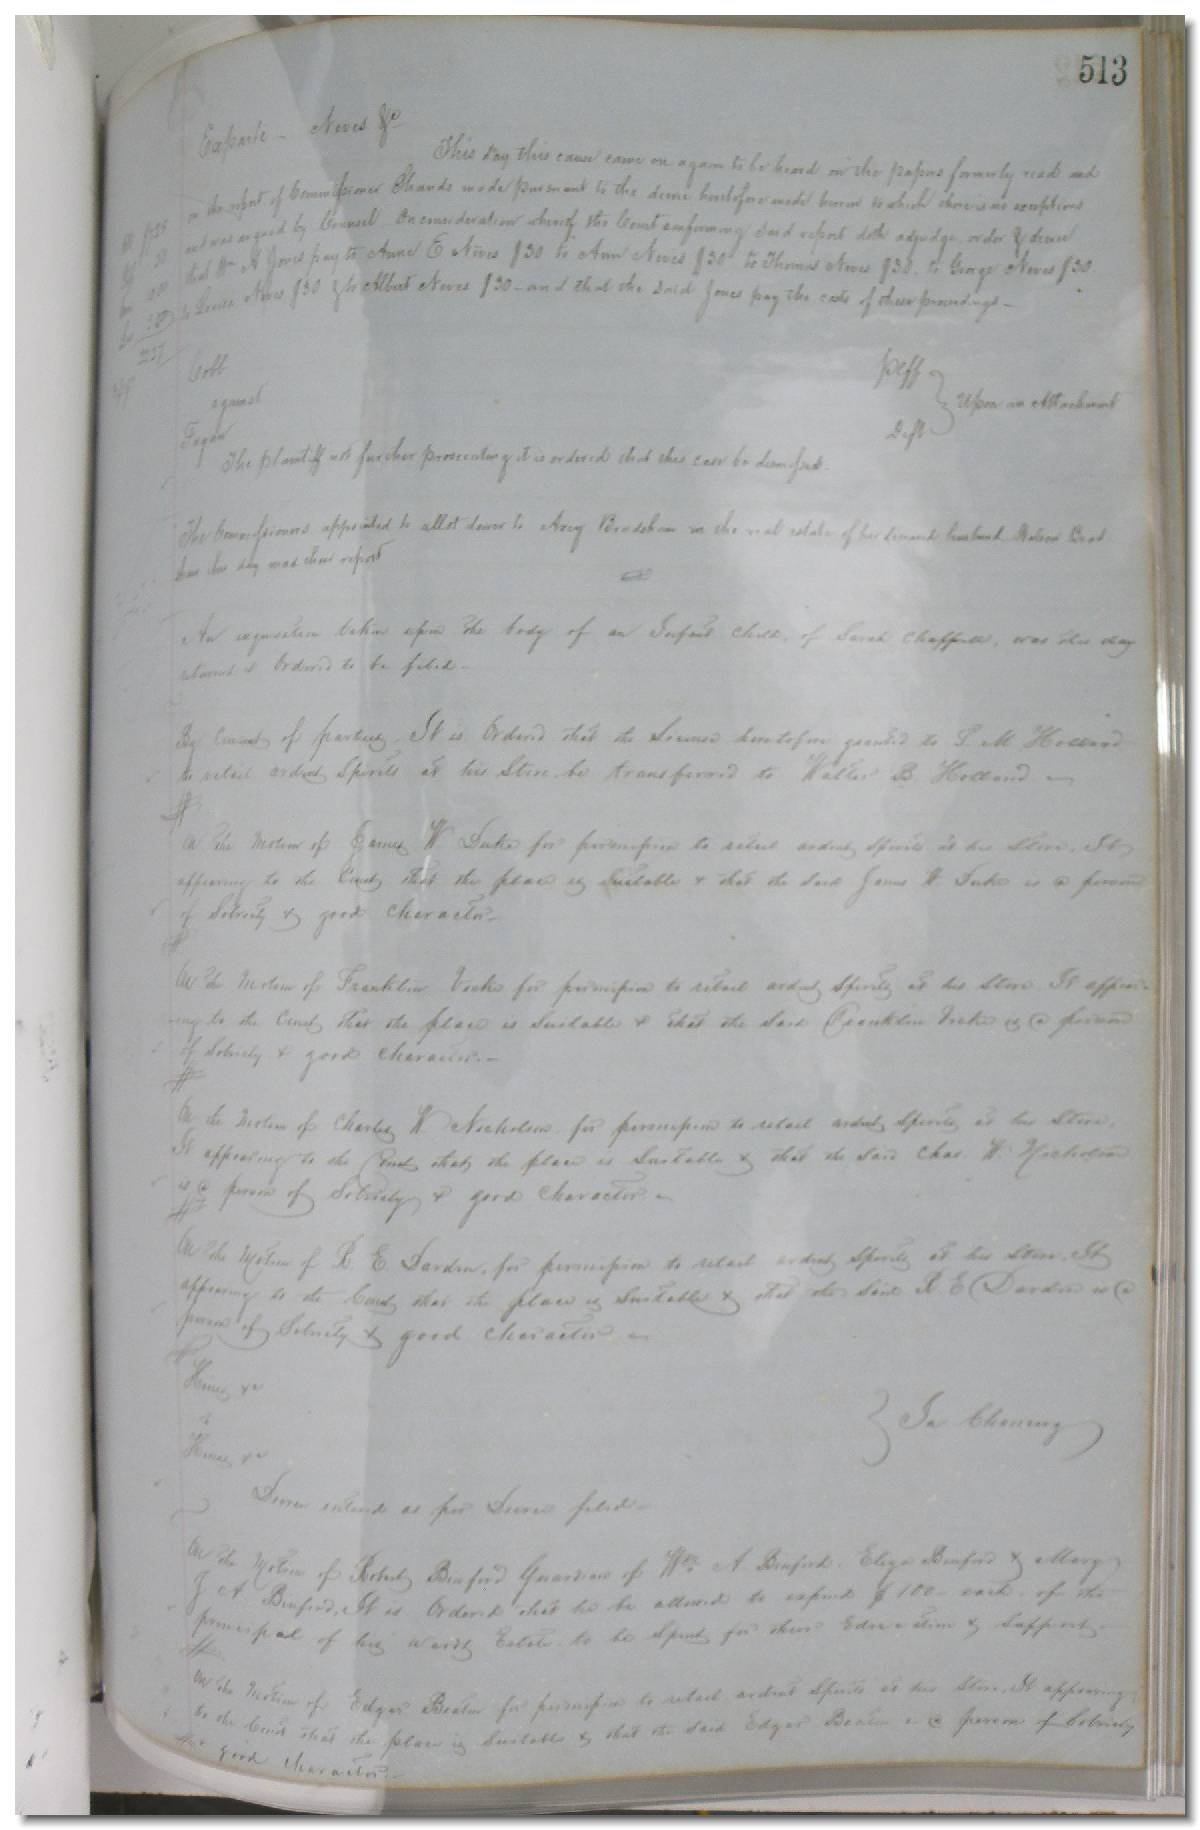 513
Exparte - Neves &c
This day this cause came on again to be heard on the papers formerly read and
on the report of Commissioner Shands made pursuant to the decree heretofore made herein to which there is no exceptions
and was argued by Counsel. On consideration whereof the Court confirming said report doth adjudge, order & decree
that Wm H Jones pay to Anne E Neves $30 to Ann Neves $30 to Thomas Neves $30. to George Neves $30.
to Louisa Neves $30 & to Albert Neves $30 - and that the said Jones pay the costs of these proceedings -
Cobb Plff
against Upon an Attachment
Deft
The plantiff not further prosecuting it is ordered that this case be dismissed.
The Commissioners appointed to allot dower to Bradshaw in the real estate of her deceased husband Nelson Brad
shaw this day made their report
An inquisition taken upon the body of an Infant child, of Sarah Chappell, was this day
returned & Ordered to be filed -
By Consent of parties It is Ordered that the License heretofore granted to Holland
to retail ardent Spirits at his Store be transferred to Walter B. Holland -
On the Motion of James W Duke for permission to retail ardent Spirits at his Store. It
appearing to the Court that the place is Suitable & that the said James W Duke is a person
of Sobriety & good Character -
On the Motion of Franklin for permission to retail ardent Spirits at his Store. It appear-
ing to the Court that the place is Suitable & that the said Franklin is a person
of Sobriety & good Character. -
On the Motion of Charles W. Nicholson for permission to retail ardent Spirits at his Store,
It appearing to the Court that the place is Suitable & that the said Chas. W. Nicholson
is a person of Sobriety & good Character. -
On the Motion of R. E. Darden, for permission to retail ardent Spirits at his Store. It
appearing to the Court that the place is Suitable & that the said R E Darden is a
person of Sobriety & good Character -
Hines &c
v In Chancery
Hines &c
Decree entered as per Decree filed -
On the Motion of Robert Binford Guardian of Wm A Binford, Eliza Binford & Mary
J A Binford, It is Ordered that he be allowed to expend $100 - each. of the
principal of his wards Estate to be Spent for their Education & Support. -
On the Motion of Edgar Beaton for permission to retail ardent Spirits at his Store. It appearing
to the Court that the place is Suitable & that the said Edgar Beaton is a person of Sobriety
& good Character. -